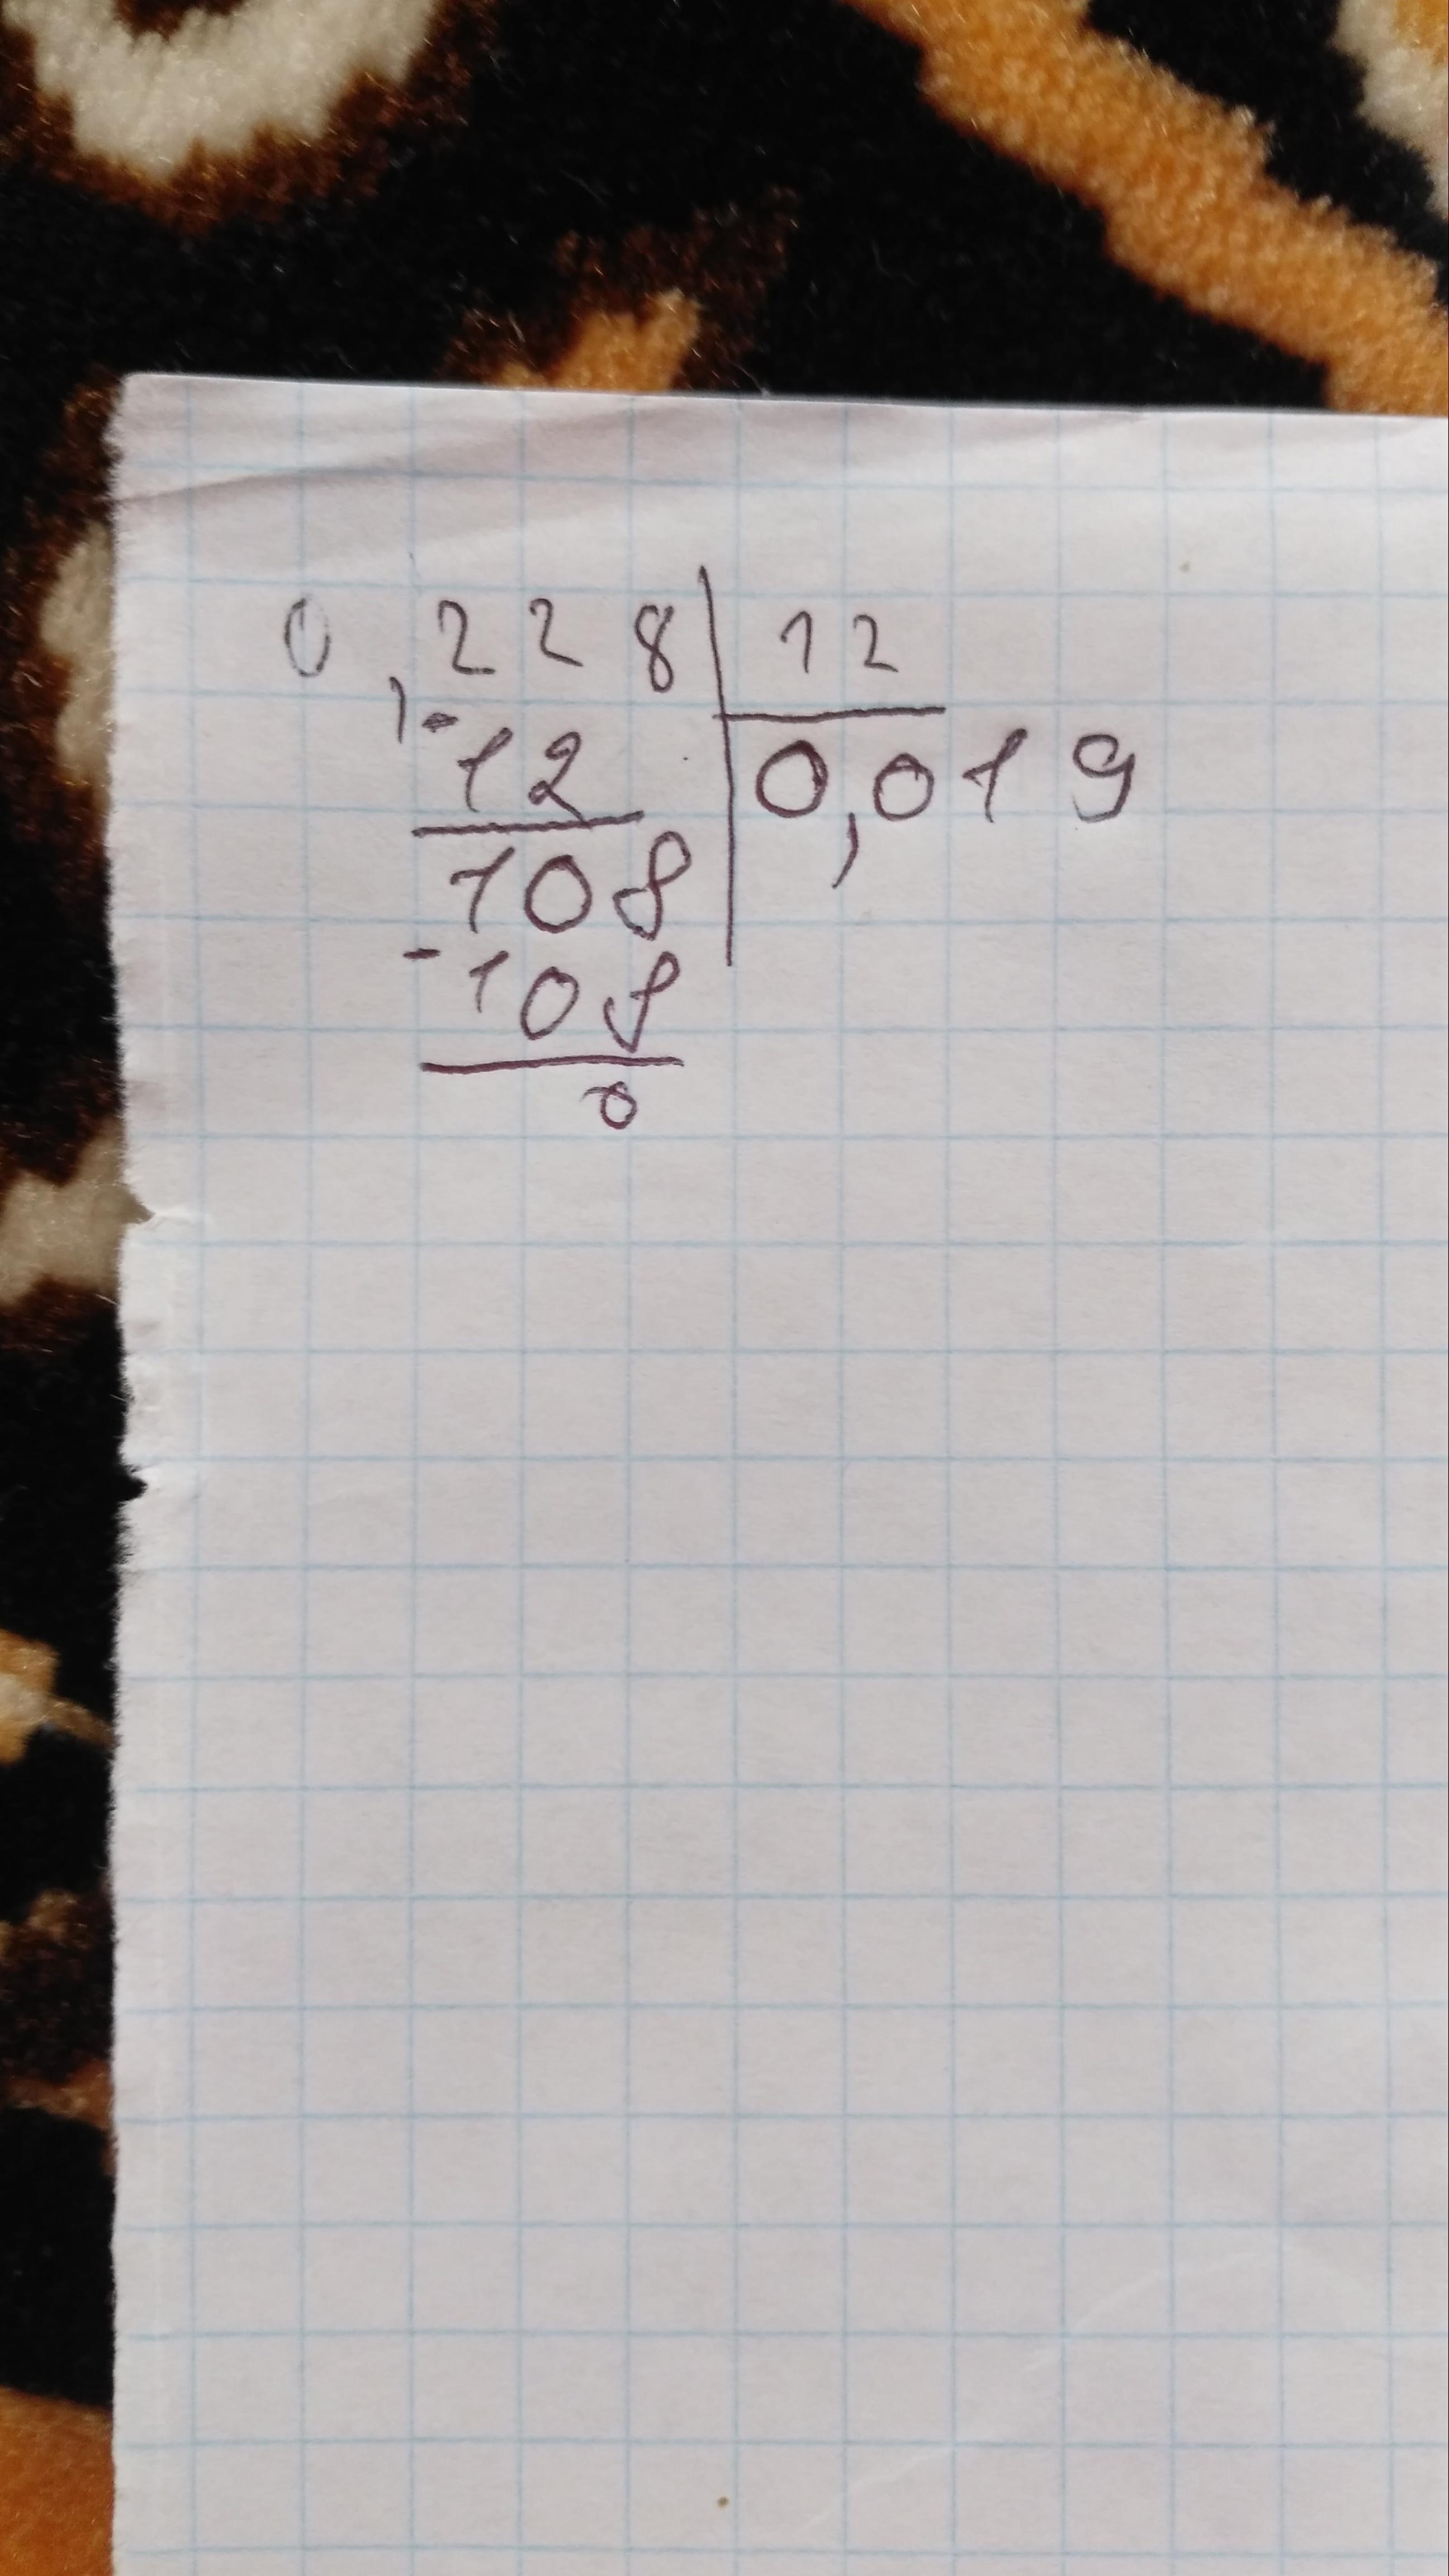 0,228 12
- 12 0,019
108
- 108
0